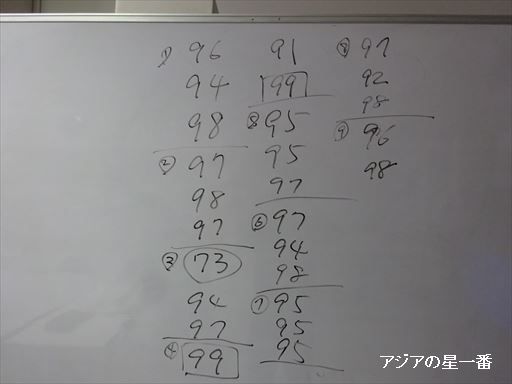 ① 96
94
98
② 97
98
97
③ 73
94
97
④ 99
91
99
95
95
97
⑥ 97
94
98
⑦ 95
95
95
⑧ 97
92
98
⑨ 96
98
アジアの星一番